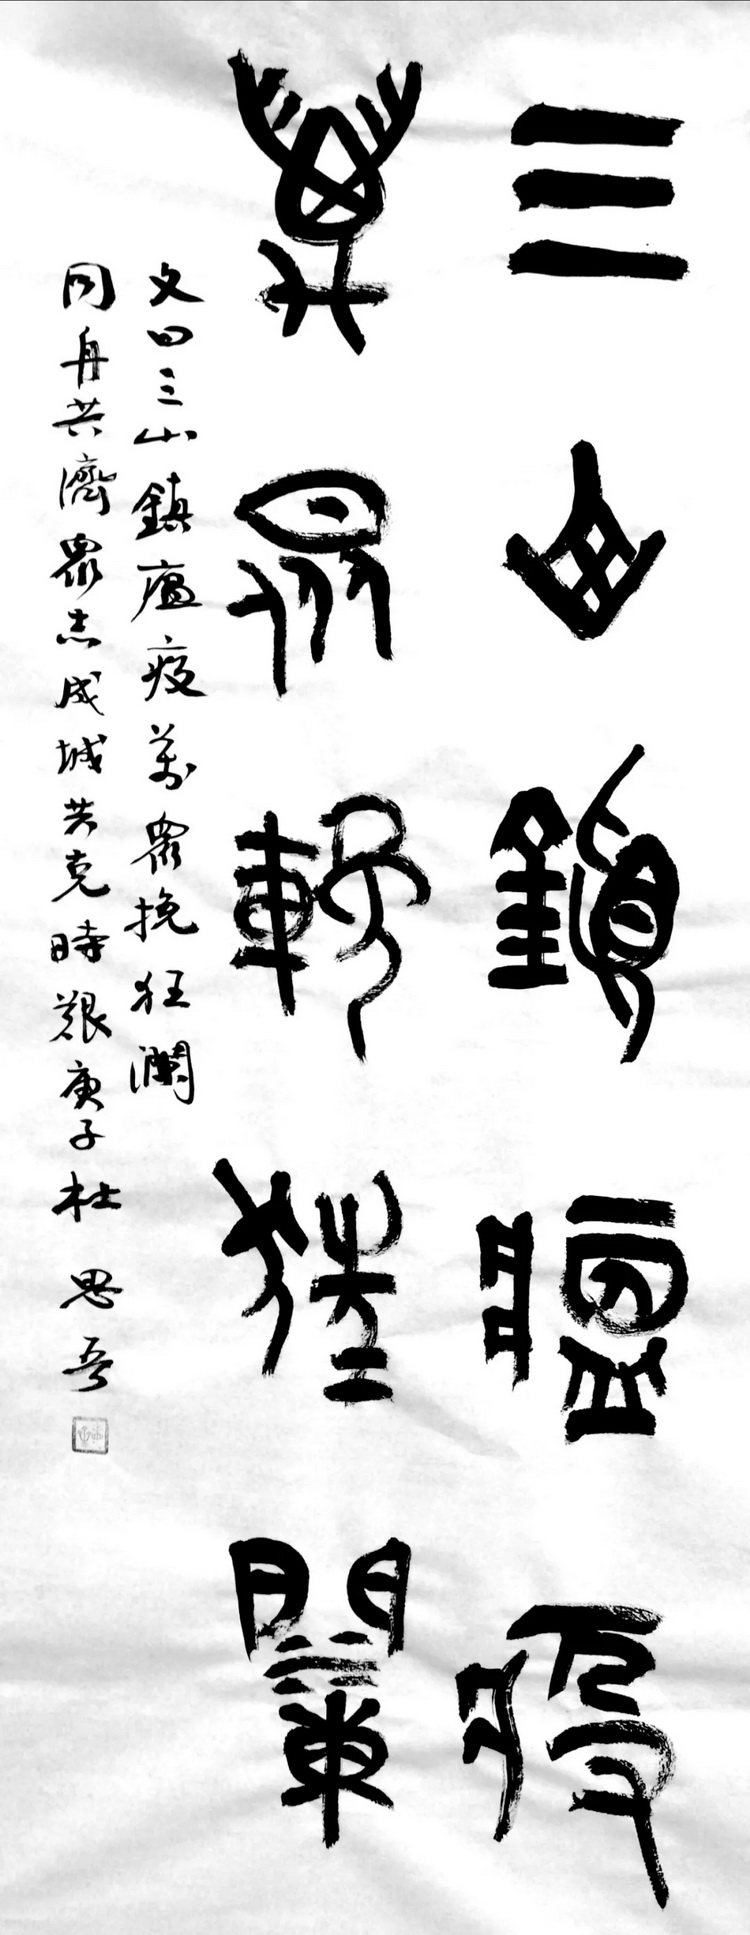 三山鎮瘟疫
萬眾輓狂瀾
文曰三山鎮瘟疫萬眾挽狂瀾
同舟共濟眾志成城共克時艱庚子杜思吾